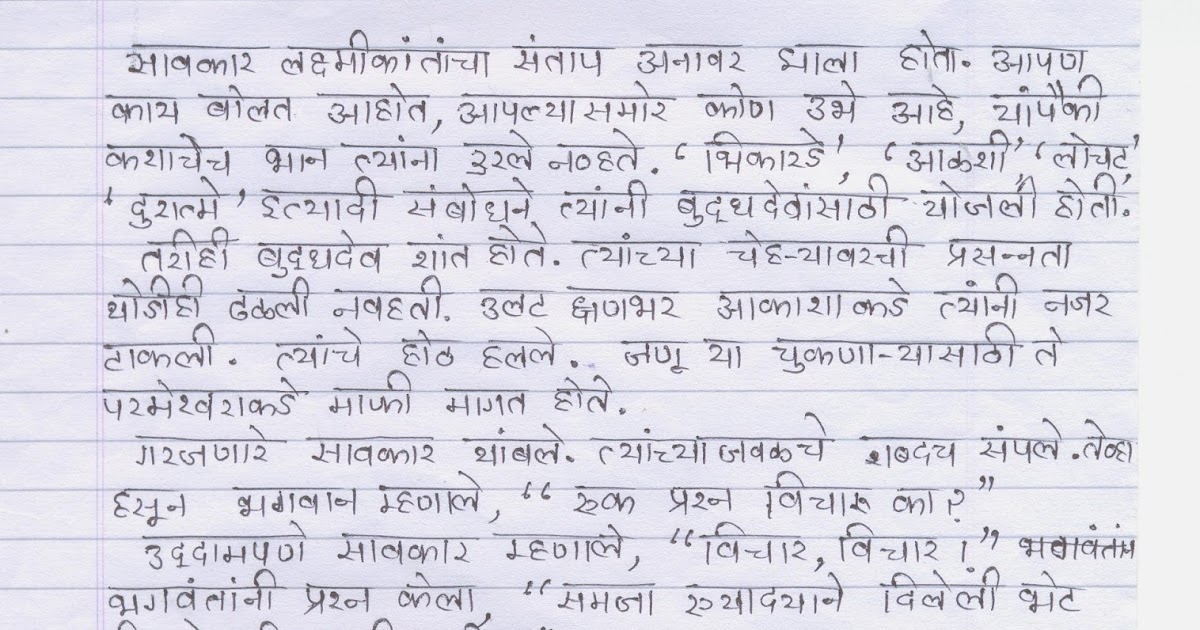 सावकार लक्ष्मीकांतांचा संताप अनावर झाला होता. आपण
काय बोलत आहोत, आपल्यासमोर कोण उभे आहे, यांपैकी
कशाचेच भान त्यांना उरले नव्हते. ‘भिकारडे’, ‘आळशी’, ‘लोचट’,
‘दुरात्मे’ इत्यादी संबोधने त्यांनी बुद्धदेवांसाठी योजली होती.
तरीही बुद्धदेव शांत होते. त्यांच्या चेहऱ्यावरची प्रसन्नता
थोडीही ढळली नवहती. उलट क्षणभर आकाशाकडे त्यांनी नजर
टाकली. त्यांचे होठ हलले. जणू या चुकणाऱ्यासाठी ते
परमेश्वराकडे माफी मागत होते.
गरजणारे सावकार थांबले. त्यांच्याजवळचे शब्दच संपले. तेव्हा
हसून भगवान म्हणाले, “एक प्रश्न विचारू का?”
उद्दामपणे सावकार म्हणाले, “विचार, विचार!”
भगवंतांनी प्रश्न केला, “समजा एखाद्याने दिलेली भेट